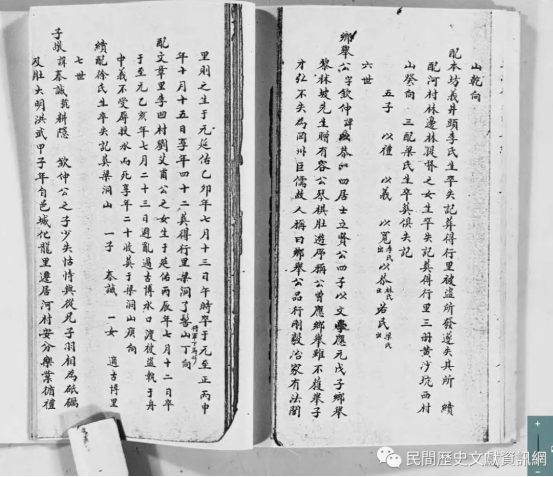 山乾向
配本坊義井頭李氏生卒失記葬得行里被盜所發遂失其所 續
配河村林邊林提督之女生卒失記葬得行里三冊黃沙坑西村
山癸向 三配梁氏生卒葬俱失記
五子 以禮 以義 以寬李氏出 以恭林氏出 若民梁氏出
六世
鄉舉公字欽仲諱 四居士立贊公四子以文學應元戊子鄉舉
黎林坡先生贈有容公琴棋壯遊序稱公曾應鄉舉雖不獲舉子
才弘不失為岡州巨儒故人稱曰鄉舉公品行剛毅治家有法閫
里則之生于元延佑乙卯年七月十三日午時卒于元至正丙申
年十月十五日享年四十二葬得行里梁洞了髻山丁向
配文章里李四村劉艾甫公之女生于延佑丙辰年七月十二日卒
于至元乙亥年七月二十三日避亂過古博水口渡被盜執于舟
中義不受辱投水而死享年二十收葬于梁洞山庚向
續配徐氏生卒失記葬梁洞山 一子 泰誠 一女 適古博里
七世
子 諱泰誠號耕隱 欽仲公之子少失怙恃與從兄子羽相為砥礪
及壯大明洪武甲子年自邑城化龍里遷居河村安分樂業循禮
民間歷史文獻資訊網